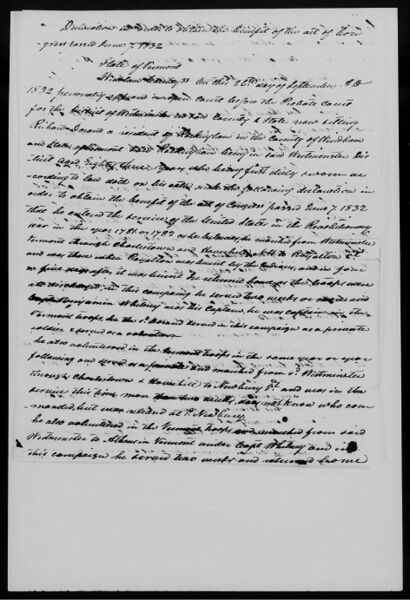 Declaration in order to obtain the benefit of the act of Con
gress passed June 7, 1832
State of Vermont
Windham County SS On this 26th day of September AD
1832 personally appeared in open Court before the Probate Court
for the District of Westminster in said County & State now sitting
Richard a resident of Rockingham in the County of Windham
and State of Vermont said Rockingham being in said Westminster Dis
trict aged Eighty three years who being first duly sworn ac
cording to law doth on his oath make the following declaration in
order to obtain the benefit of the act of Congress passed June 7, 1832
that he entered the service of the United States in the Revolutionary
war in the year 1781 or 1782 which he believes he marched from Westminster
Vermont through Charlestown and N.H. to Royalton Vt
and was there when Royalton was burnt by the Indians and in four
or five days after it was burnt he returned home the troops were
all discharged, in this campaign he served two weeks or more and
Benjamin Whitney was the Captain, he was captain in the
Vermont troops he the sd served in this campaign as a private
soldier & served as a volunteer
he also volunteered in the Vermont troops in the same year or year
following and served as a private and marched from sd Westminster
through Charlestown & Haverhill to Newbury Vt and was in the
service this time more than two weeks, does not know who com
manded, but was relieved at sd Newbury.
he also volunteered in the Vermont troops and marched from said
Westminster to Athens in Vermont under Capt Whitney and in
this campaign he served two weeks and returned home